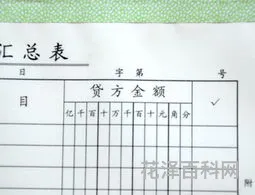 汇总表
日 字第 号
目 贷方金额 ✓
亿千百十万千百十元角分
附
花泽百科网